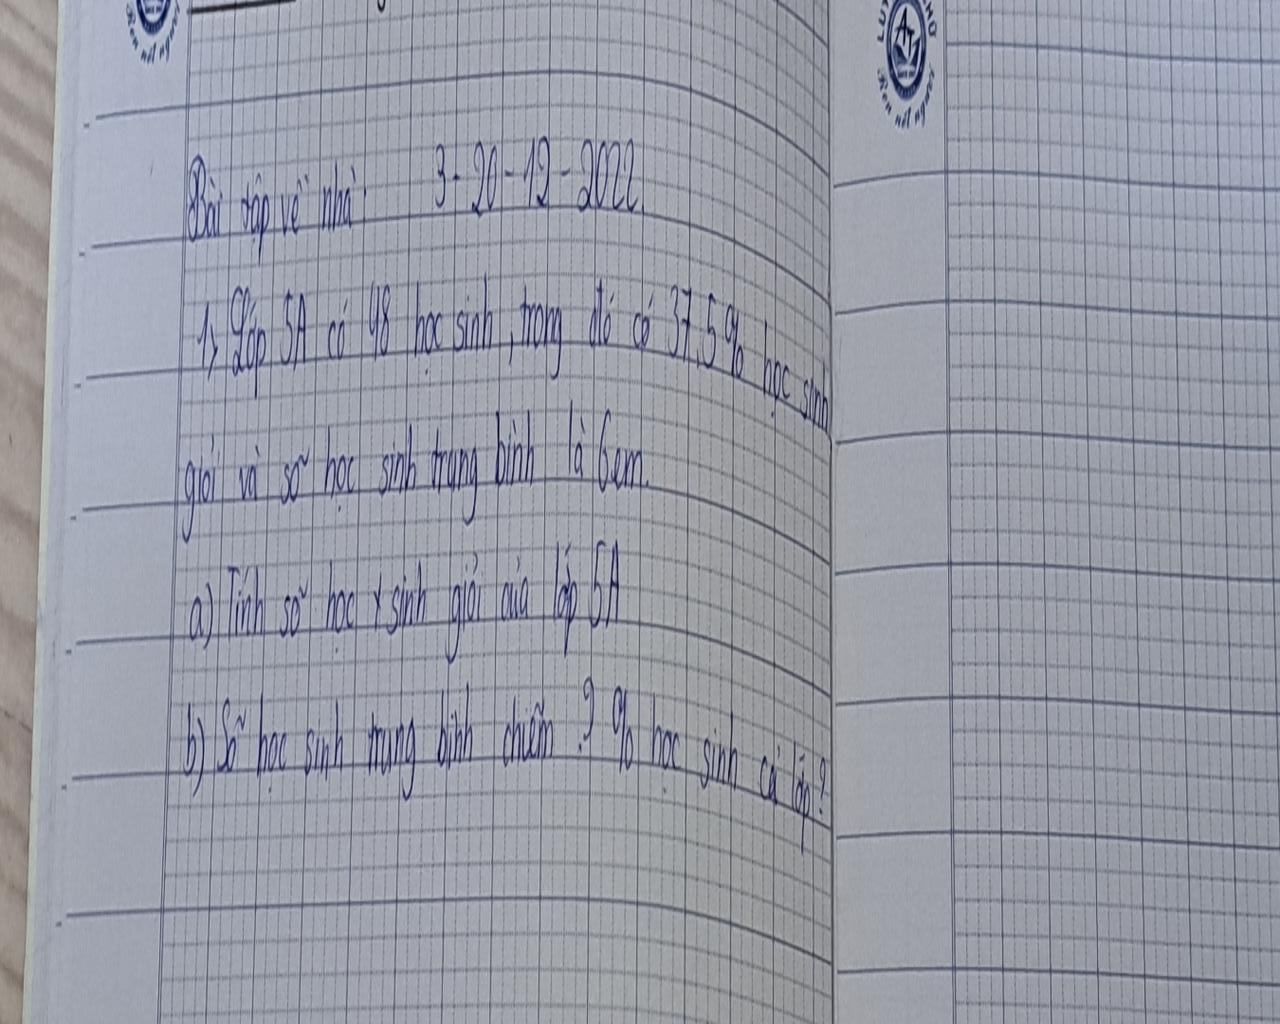 Rèn nết người
Bài tập về nhà: 3-20-12-2022
1, Lớp 5A có 48 học sinh, trong đó có 37,5% học sinh
giỏi và số học sinh trung bình là 6em.
a) Tính số học sinh giỏi của lớp 5A
b) Số học sinh trung bình chiếm ? % học sinh cả lớp?
Rèn nết người